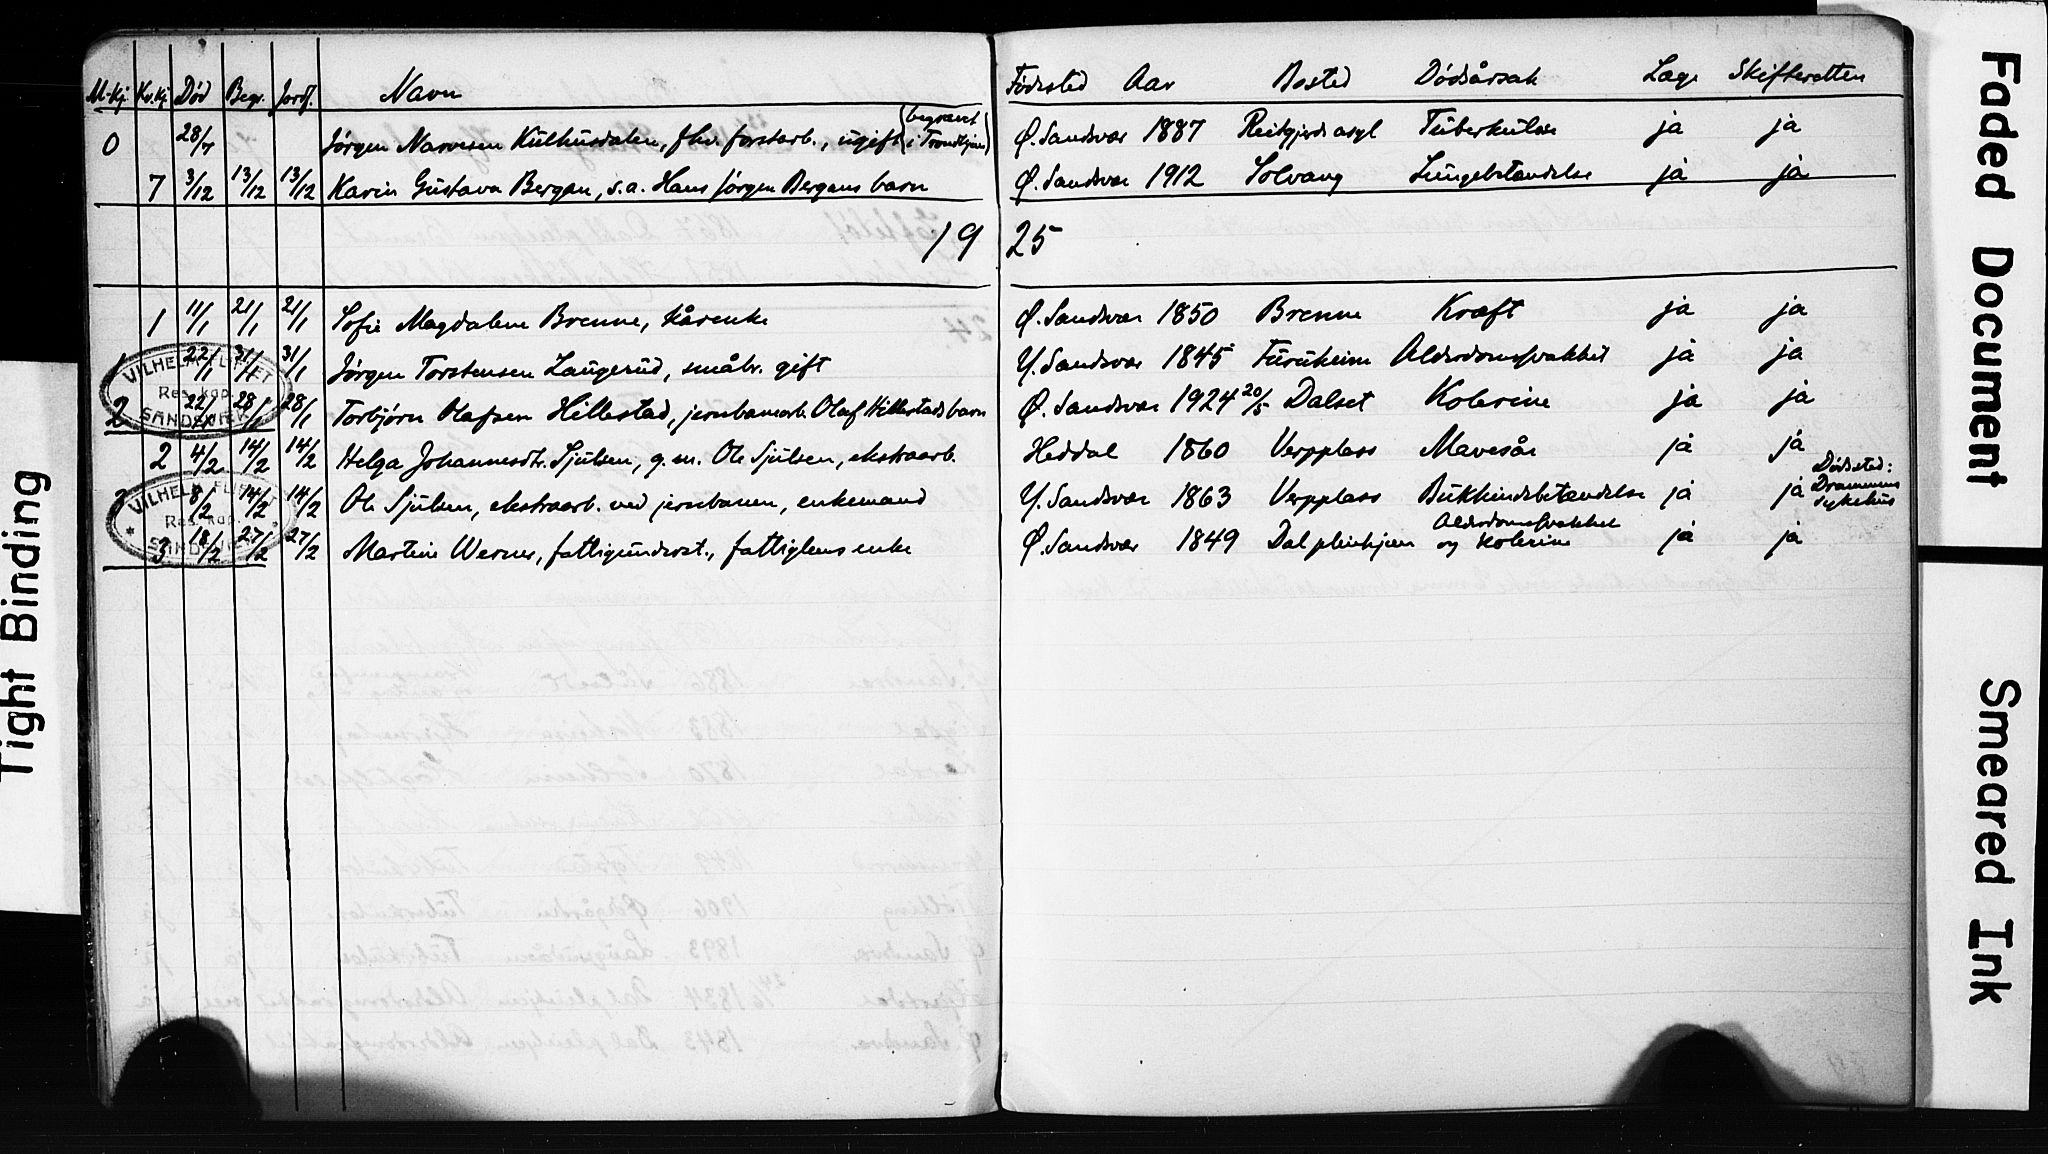 M.kj. Kv.kj. Død Begr. Jordf. Navn Fødested Aar Bosted Dødsårsak Læge Skifteretten
0 28/7 Jørgen Narvesen Kulhusdalen, fhv. forstarb., ugift (begravet i Trondhjem) Ø. Sandsvær 1887 Reitgjerds asyl Tuberkulose ja ja
7 3/12 13/12 13/12 Karin Gustava Bergan, s.a. Hans Jørgen Bergans barn Ø. Sandsvær 1912 Solvang Lungebetændelse ja ja
1925
1 11/1 21/1 21/1 Sofie Magdalene Brenne, kårenke Ø. Sandsvær 1850 Brenne Kræft ja ja
1 22/1 31/1 31/1 Jørgen Torstensen Laugerud, småbr. gift Y. Sandsvær 1845 Furuheim Alderdomssvakhet ja ja
2 22/1 28/1 28/1 Torbjørn Olafsen Hillestad, jernbanearb. Olaf Hillestads barn Ø. Sandsvær 1924 20/5 Dalset Kolerine ja ja
2 4/2 14/2 14/2 Helga Johannesdtr. Sjulsen, g.m. Ole Sjulsen, ekstraarb. Heddal 1860 Verpplass Mavesår ja ja
3 8/2 14/2 14/2 Ole Sjulsen, ekstraarb. ved jernbanen, enkemand Y. Sandsvær 1863 Verpplass Bukhindebetændelse ja ja Dødssted: Drammens sykehus
3 18/2 27/2 27/2 Martine Werner, fattigunderst., fattiglems enke Ø. Sandsvær 1849 Dal pleiehjem Alderdomssvakhet og kolerine ja ja
VILHELM FLIFLET
Res. kap.
SANDSVÆR
VILHELM FLIFLET
Res. kap.
SANDSVÆR
Tight Binding
Faded Document
Smeared Ink